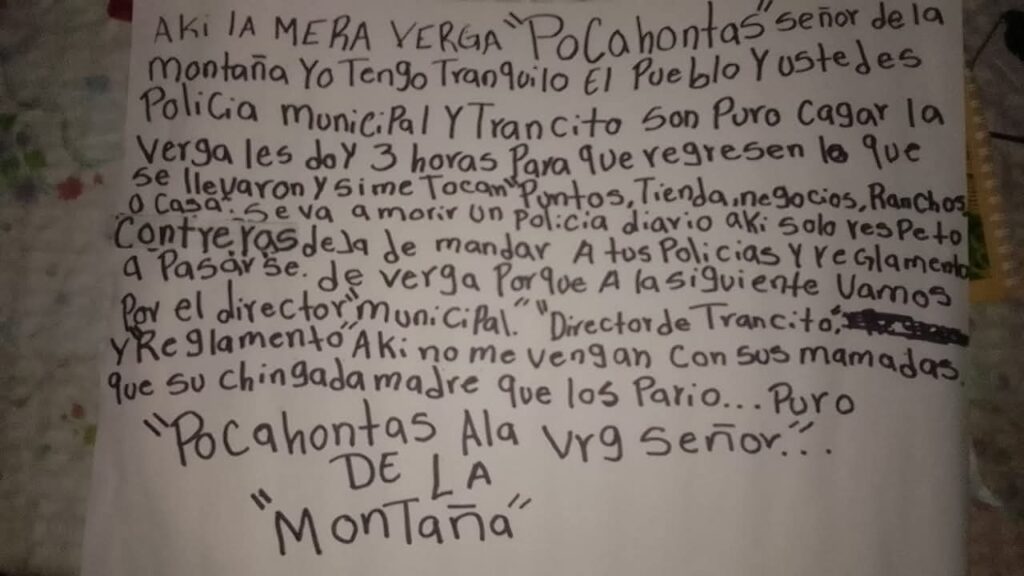 AKi lA MERA VERGA "PoCahontas" señor de la
montaña Yo Tengo Tranquilo El Pueblo Y ustedes
Policia municiPal Y Trancito son Puro Cagar la
Verga les doY 3 horas Para que regresen lo que
se llevaron y si me Tocan "Puntos, Tienda, negocios, Ranchos
o Casa" se va a morir un Policia diario aki solo respeto
Contreras deja de mandar A tos Policias Y reglamento
a Pasarse. de verga Porque A la siguiente Vamos
Por el director "municiPal." "Director de Trancito,"
Y "Reglamento" AKi no me vengan Con sus mamadas.
que su chingada madre que los Pario... Puro
"Pocahontas Ala Vrg señor"...
DE LA
"MonTaña"